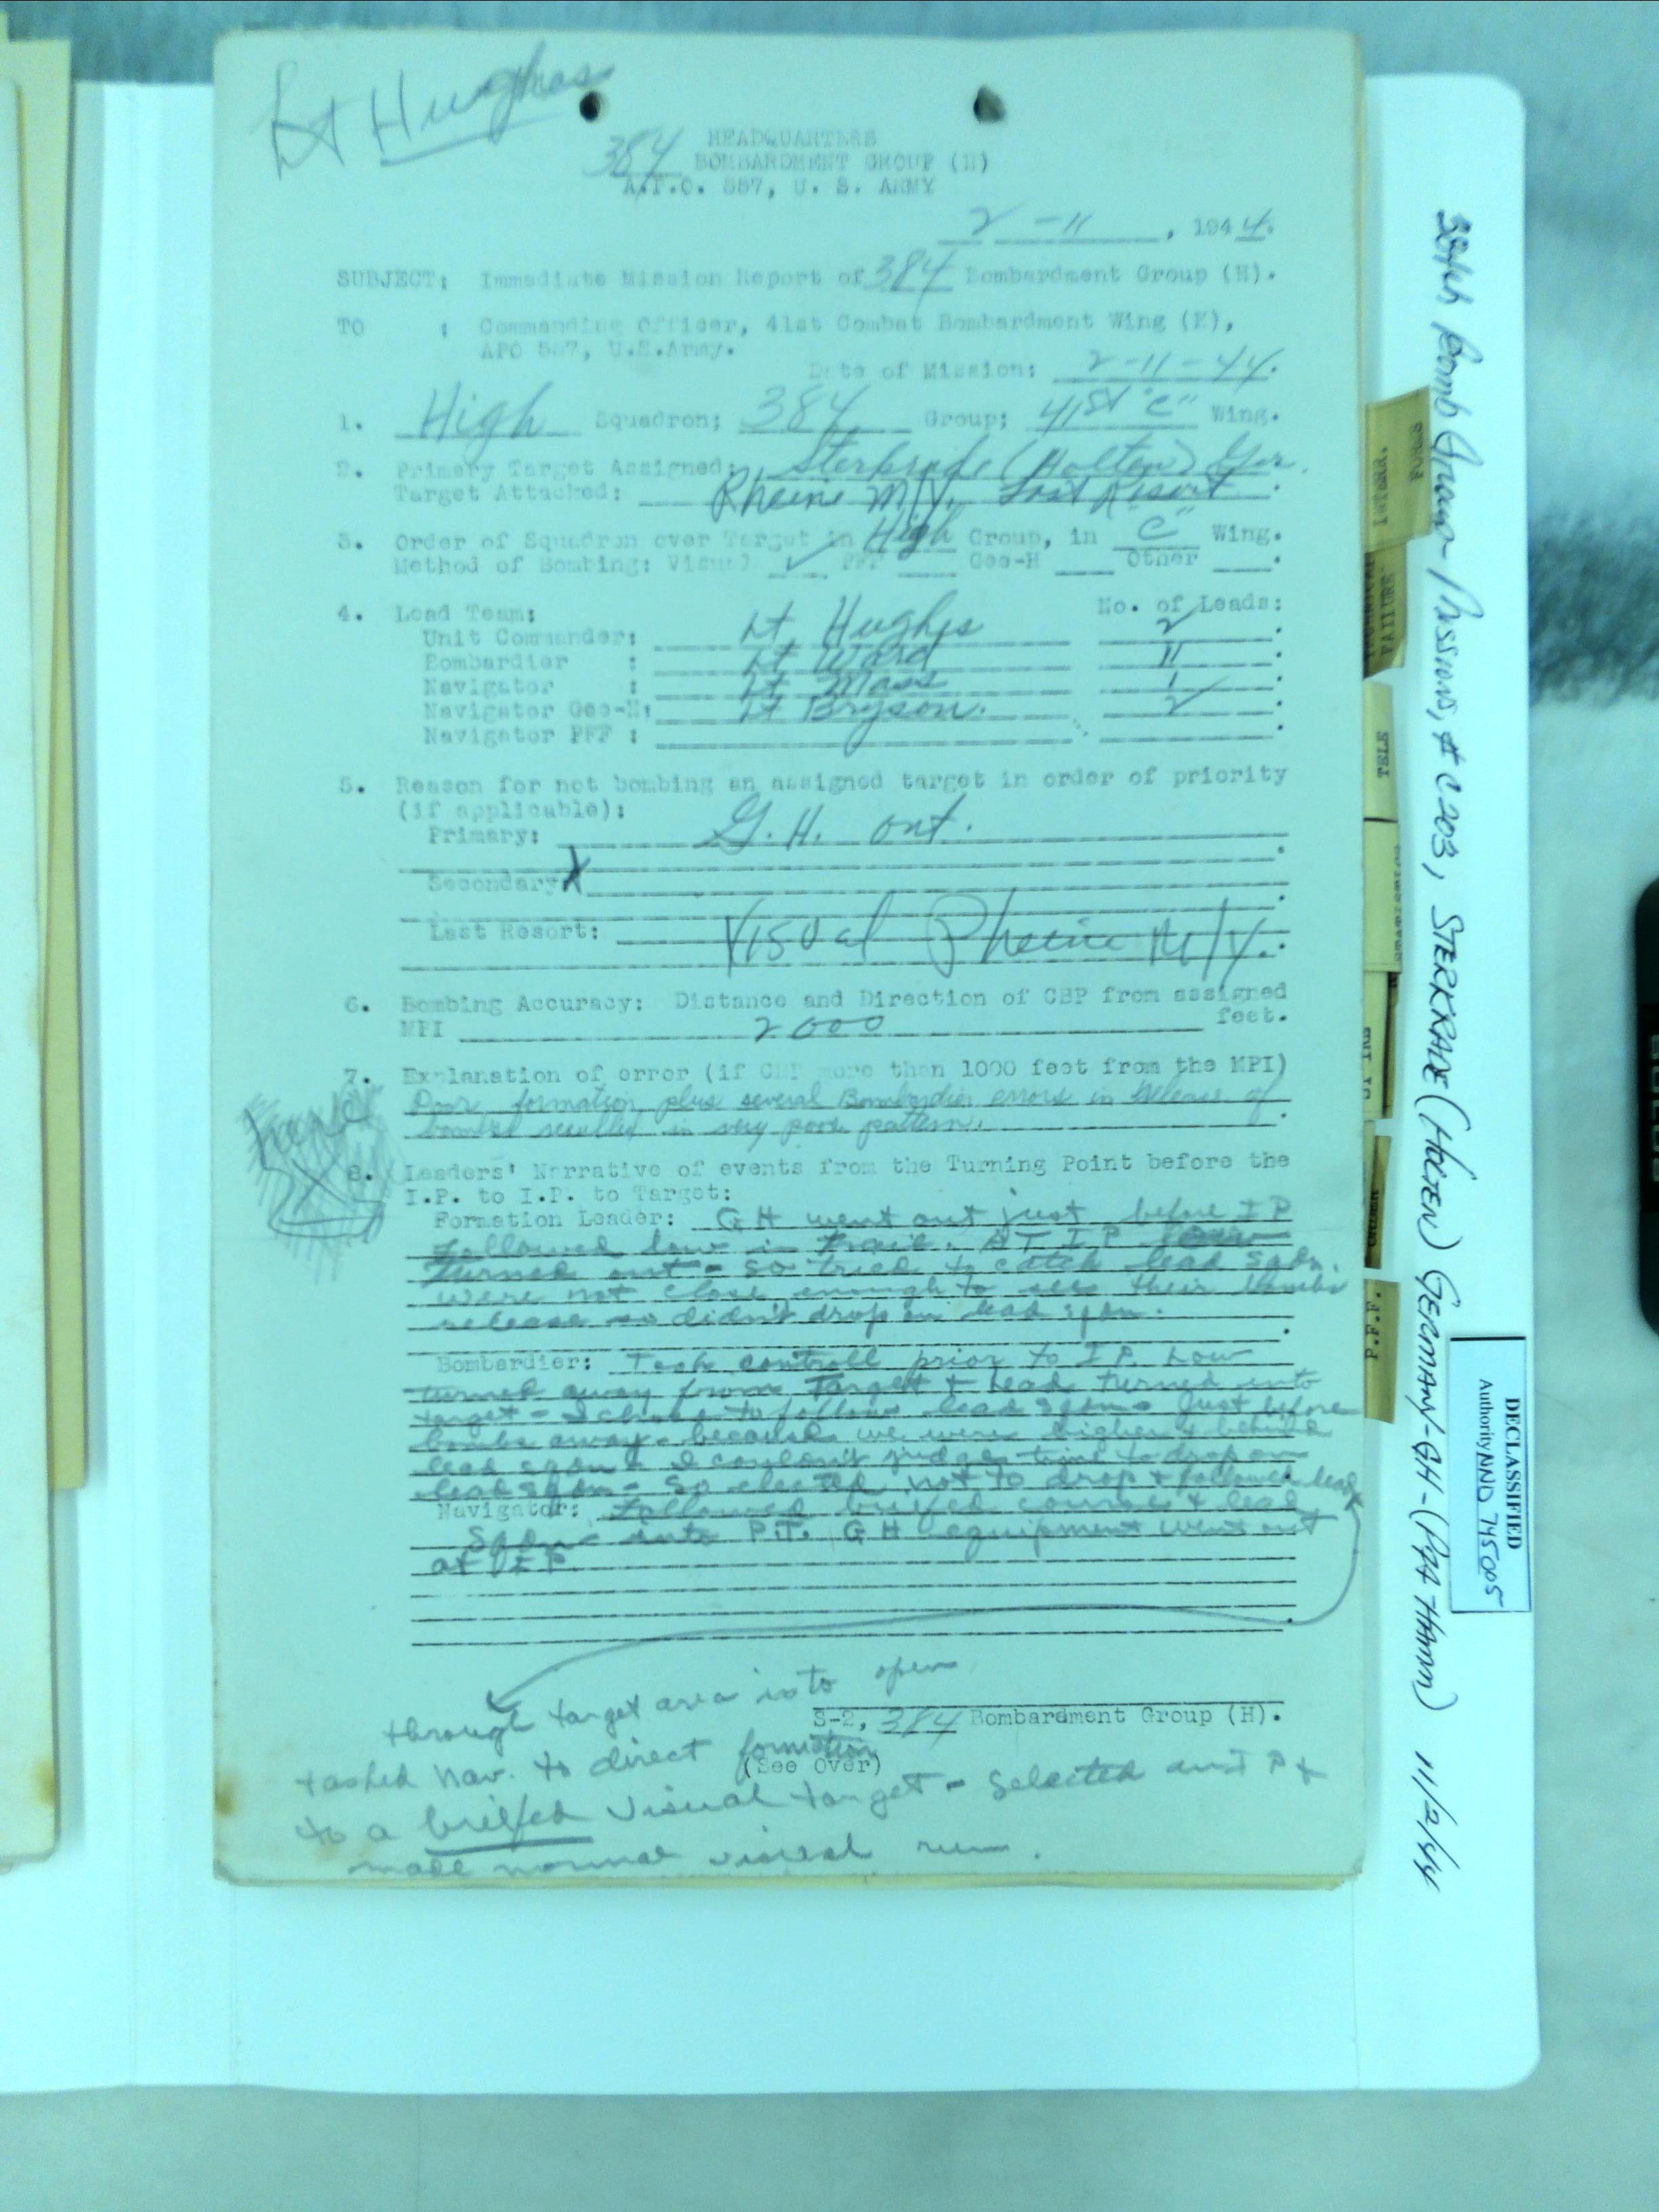 Lt Hughes
HEADQUARTERS
384 BOMBARDMENT GROUP (H)
A.P.O. 557, U. S. ARMY
2 - 11 , 1944.
SUBJECT: Immediate Mission Report of 384 Bombardment Group (H).
TO : Commanding Officer, 41st Combat Bombardment Wing (H),
APO 557, U.S.Army.
Date of Mission: 2-11-44.
1. High Squadron; 384 Group; 41st "C" Wing.
2. Primary Target Assigned: Sterkrade (Holten) Ger.
Target Attached: Rheine M/Y. Last Resort.
3. Order of Squadron over Target in High Group, in "C" Wing.
Method of Bombing: Visual ✓ PFF Gee-H Other .
4. Lead Team: No. of Leads:
Unit Commander: Lt. Hughes 2.
Bombardier : Lt Ward 11.
Navigator : Lt Mass 1.
Navigator Gee-H: Lt Bryson. 2.
Navigator PFF :
5. Reason for not bombing an assigned target in order of priority
(if applicable):
Primary: G.H. out.
Secondary: X
Last Resort: Visual Rheine M/Y.
6. Bombing Accuracy: Distance and Direction of CBP from assigned
MPI 2000 feet.
7. Explanation of error (if CBP more than 1000 feet from the MPI)
Poor formation plus several Bombardier errors in release of
bombs resulted in very poor pattern.
8. Leaders' Narrative of events from the Turning Point before the
I.P. to I.P. to Target:
Formation Leader: GH went out just before IP
followed low in trail. AT I.P. low
turned out - so tried to catch lead sqdn.
were not close enough to see their bombs
release so didn't drop on lead sqdn.
Bombardier: Took controll prior to I.P. Low
turned away from Target + Lead turned into
target - I chose to follow lead sqdn. Just before
bombs away - because we were higher + behind
lead sqdn - I couldn't judge time to drop on
lead sqdn - so elected not to drop + followed lead
Navigator: Followed briefed course + lead
Sqdn into P.T. GH equipment went out
at I.P.
through target area into open
S-2, 384 Bombardment Group (H).
+ asked Nav. to direct formation
(See Over)
to a briefed visual target - selected an I P +
made normal visual run.
384th Bomb Group - Mission, # C203, STERKRADE (HOLTEN) GERMANY-GH- 11/2/44
DECLASSIFIED
Authority NND 745005
INTERR.
FORMS
FAILURE
TELE
P.F.F.